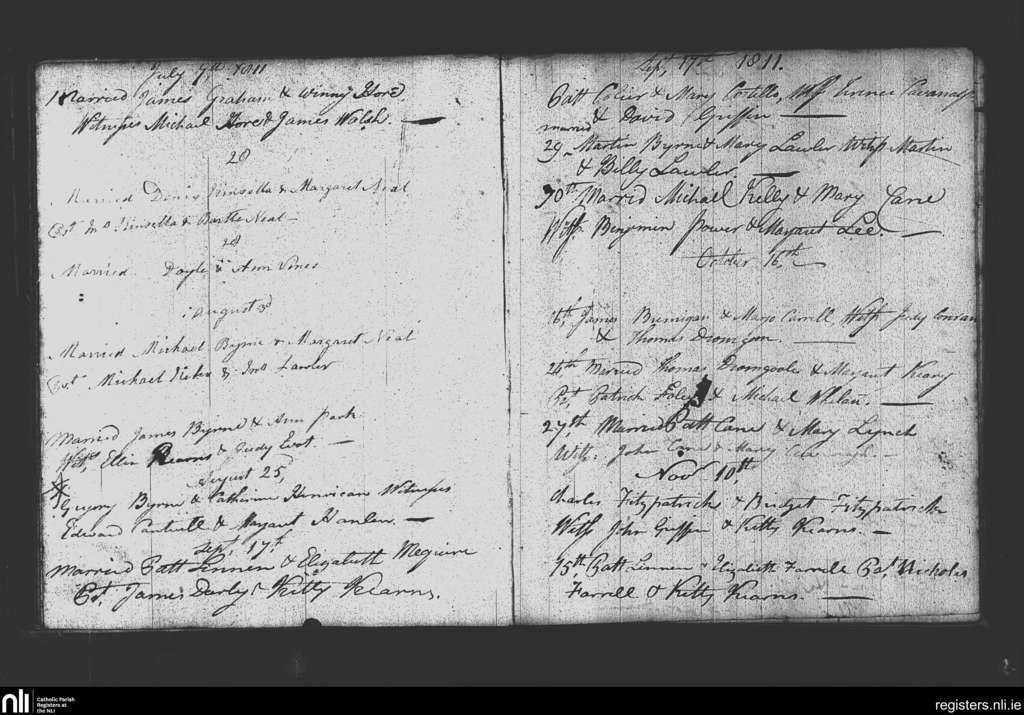 July 7th 1811
Married James Graham & Winny Hore,
Witnesses Michael Hore & James Walsh.
20
Married Denis Kinsella & Margaret Neal
Pst Jno Kinsella & Bartle Neal
28
Married Doyle & Ann Vines
August 3d
Married Michael Byrne & Margaret Neal
Pst Michael & Jno Lawler
Married James Byrne & Ann Park
Witss Ellin Kearns & Judy Evot.
August 25,
Gregory Byrne & Catherine Witnesses
Edward & Margaret Hanlon.
Sept. 17th
Married Patt Linnen & Elizabeth Meguire
Pst. James Darby & Kitty Kearns.
Sept. 17th 1811.
Patt Colier & Mary Costello, Wss Cavanagh
& David Griffin
married
29 Martin Byrne & Mary Lawler Witss Martin
& Billy Lawler.
30th Married Michael Kelly & Mary Lane
Witss. Benjemen Power & Margaret Lee.
October 16th
16th James Brenigan & Mary Carrell, Witss Judy Conran
& Thomas Dromgoon.
24th Married Thomas Dromgoole & Margaret Keary
Pst. Patrick Foley & Michael Whelan.
27th Married Patt Cane & Mary Lynch
Witss. John Cane & Mary Cavanagh
Novr 10th
Charles Fitzpatrick & Bridget Fitzpatrick
Witss John Griffin & Kitty Kearns.
15th Patt Linnen & Elizabeth Farrell Pst. Nicholas
Farrell & Kitty Kearns.
nli
Catholic Parish
Registers at
the NLI
registers.nli.ie